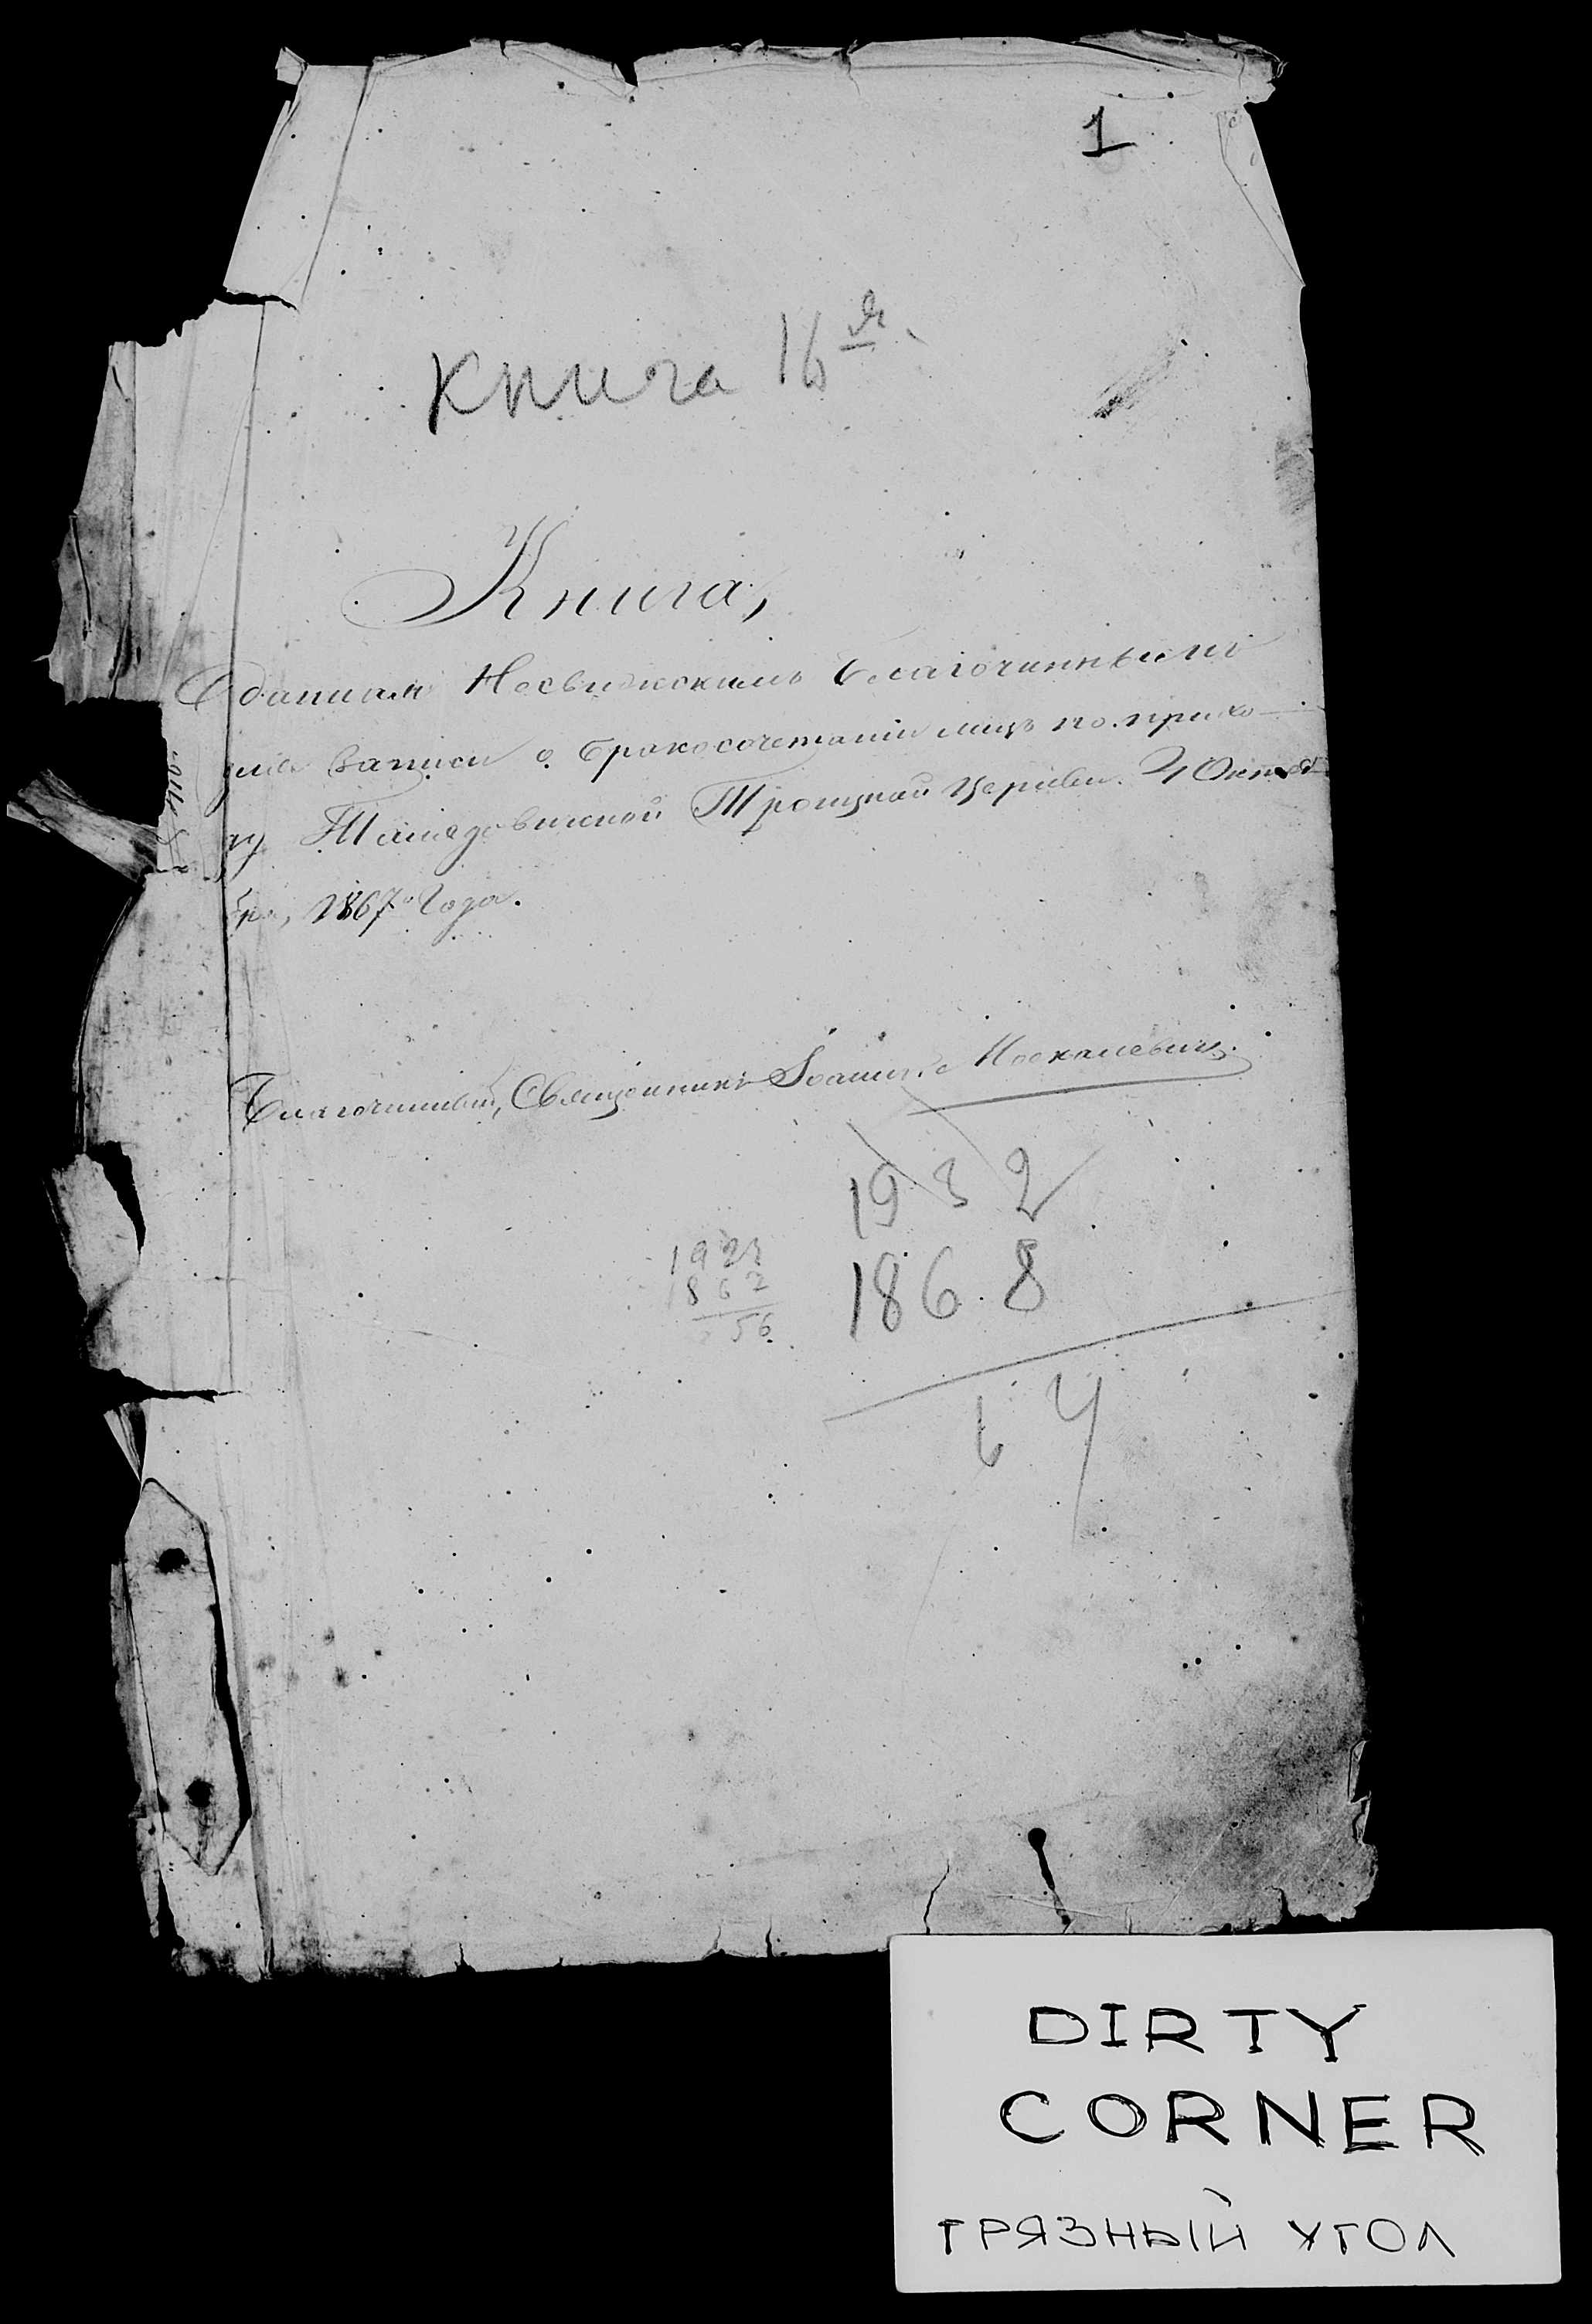 1
Книга 16 я
Книга,
Несвижскимъ Благочиннымъ
для записи о бракосочетаніи лицъ по прихо-
ду Троицкой Церкви. Октя-
бря, 1867 Года.
Благочинный, Священникъ Іоаннъ
1932
1868
64
1923
1867
56
DIRTY
CORNER
ГРЯЗНЫЙ УГОЛ